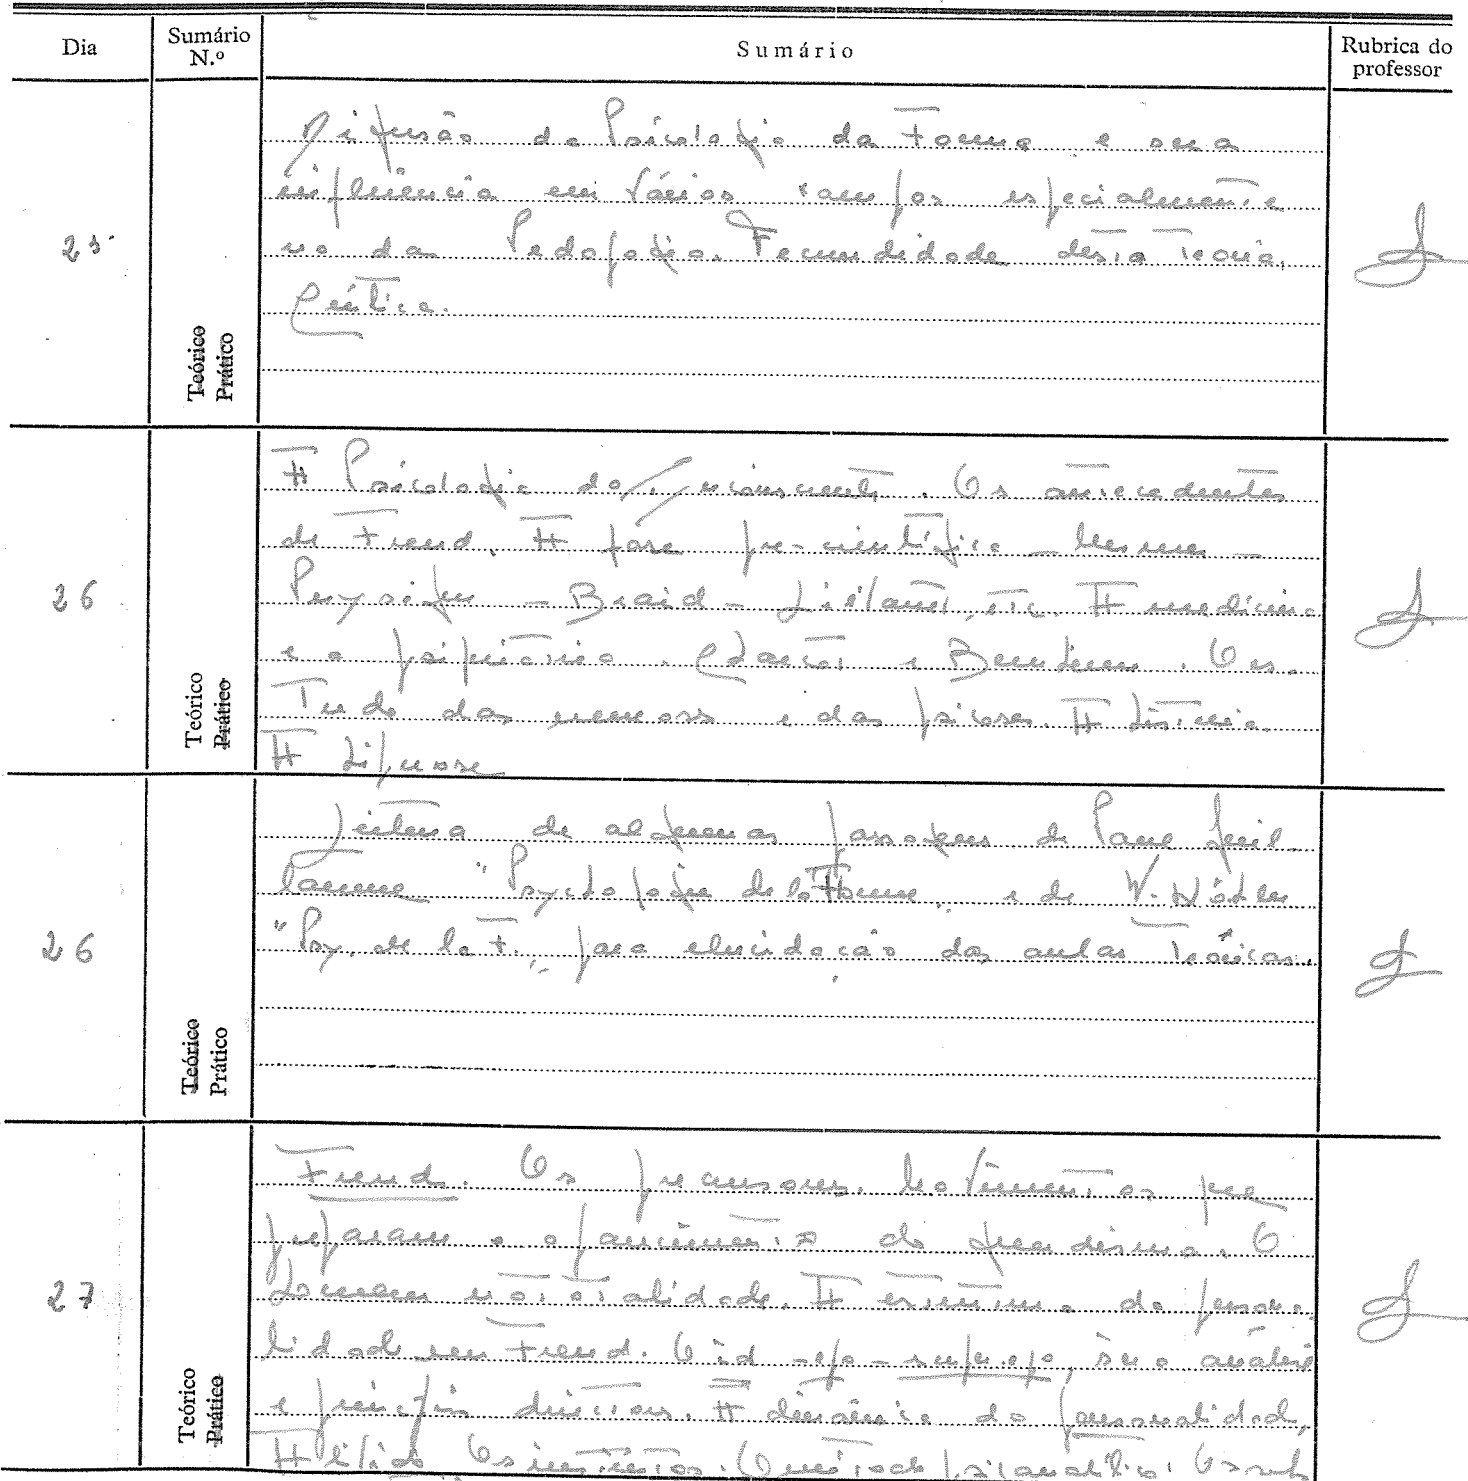 Dia
Sumário N.º
Sumário
Rubrica do professor
25
Teórico
Prático
Difusão da Psicologia da Forma e sua
influência em vários campos especialmente
no da Pedagogia. Fecundidade desta teoria.
Crítica.
26
Teórico
Prático
A Psicologia do Inconsciente. Os antecedentes
de Freud. A fase pre-científica - Mesmer -
Puységur - Braid - etc. A medicina
e a psiquiatria. Charcot e Bernheim. O es-
tudo das neuroses e das psicoses. A histeria.
A hipnose
26
Teórico
Prático
Leitura de algumas passagens de Paul Guil-
laume "Psychologie de la Forme" e de W. Köhler
"Psy. de la F." para elucidação das aulas teóricas.
27
Teórico
Prático
Freud. Os precursores. Movimentos que
preparam o aparecimento do freudismo. O
homem na totalidade. A estrutura da persona-
lidade em Freud. O id - ego - superego, sua análise
e princípios directores. A dinâmica da personalidade,
A libido Os instintos. O método psicanalítico.